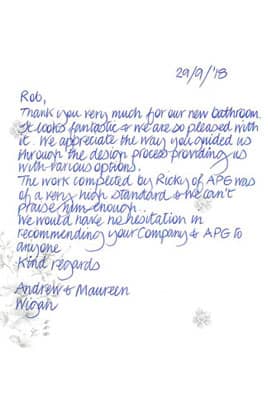 29/9/'18
Rob,
Thank you very much for our new bathroom.
It looks fantastic & we are so pleased with
it. We appreciate the way you guided us
through the design process providing us
with various options.
The work completed by Ricky of APG was
of a very high standard & we can't
praise him enough.
We would have no hesitation in
recommending your Company & APG to
anyone.
Kind regards
Andrew & Maureen
Wigan